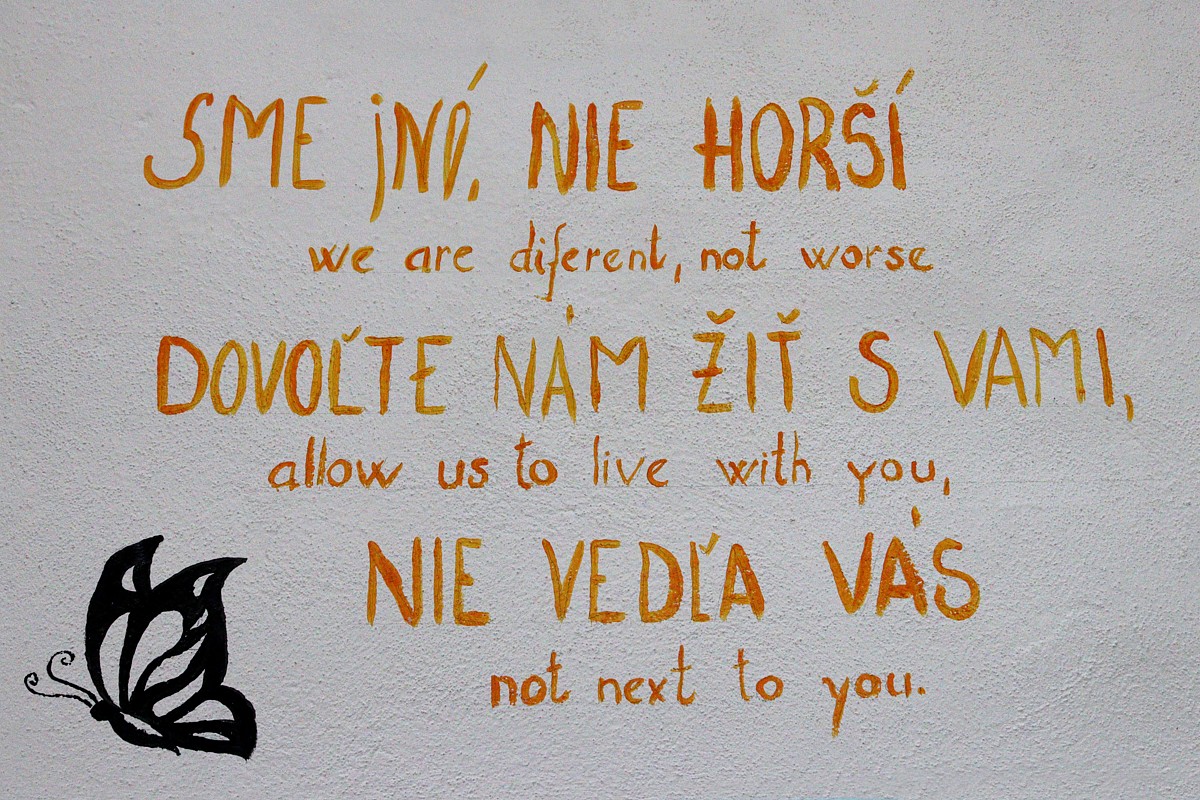 SME jNÍ, NIE HORŠÍ
we are diferent, not worse
DOVOĽTE NÁM ŽIŤ S VAMI,
allow us to live with you,
NIE VEDĽA VÁS
not next to you.